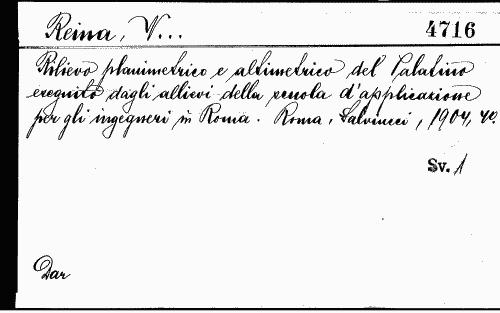 Reina, V... 4716
Rilievo planimetrico e altimetrico del Palatino
eseguito dagli allievi della scuola d'applicazione
per gli ingegneri in Roma. Roma, Salviucci, 1904, 4o.
Sv. 1
Dar